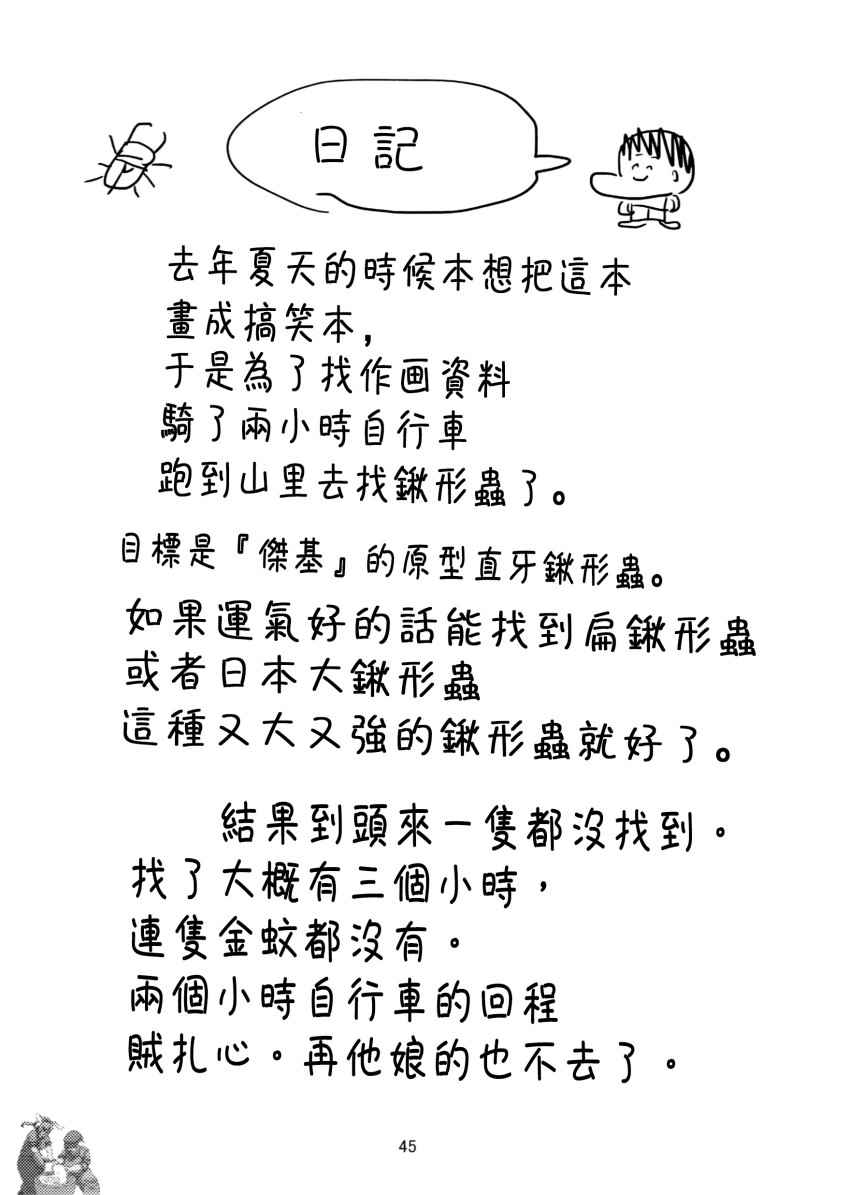 日記
去年夏天的時候本想把這本
畫成搞笑本，
于是為了找作画資料
騎了兩小時自行車
跑到山里去找鍬形蟲了。
目標是『傑基』的原型直牙鍬形蟲。
如果運氣好的話能找到扁鍬形蟲
或者日本大鍬形蟲
這種又大又強的鍬形蟲就好了。
結果到頭來一隻都沒找到。
找了大概有三個小時，
連隻金蚊都沒有。
兩個小時自行車的回程
賊扎心。再他娘的也不去了。
45